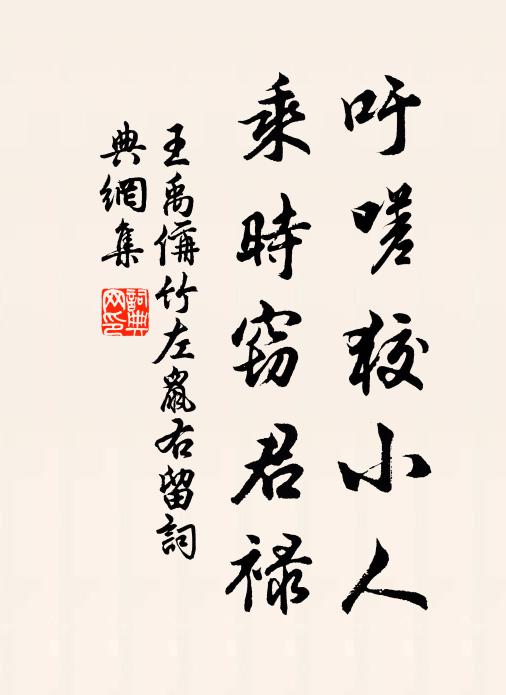 吁嗟狡小人
乘時窃君禄
王禹偁竹左鼠右留詞
典網集
詞典
网印